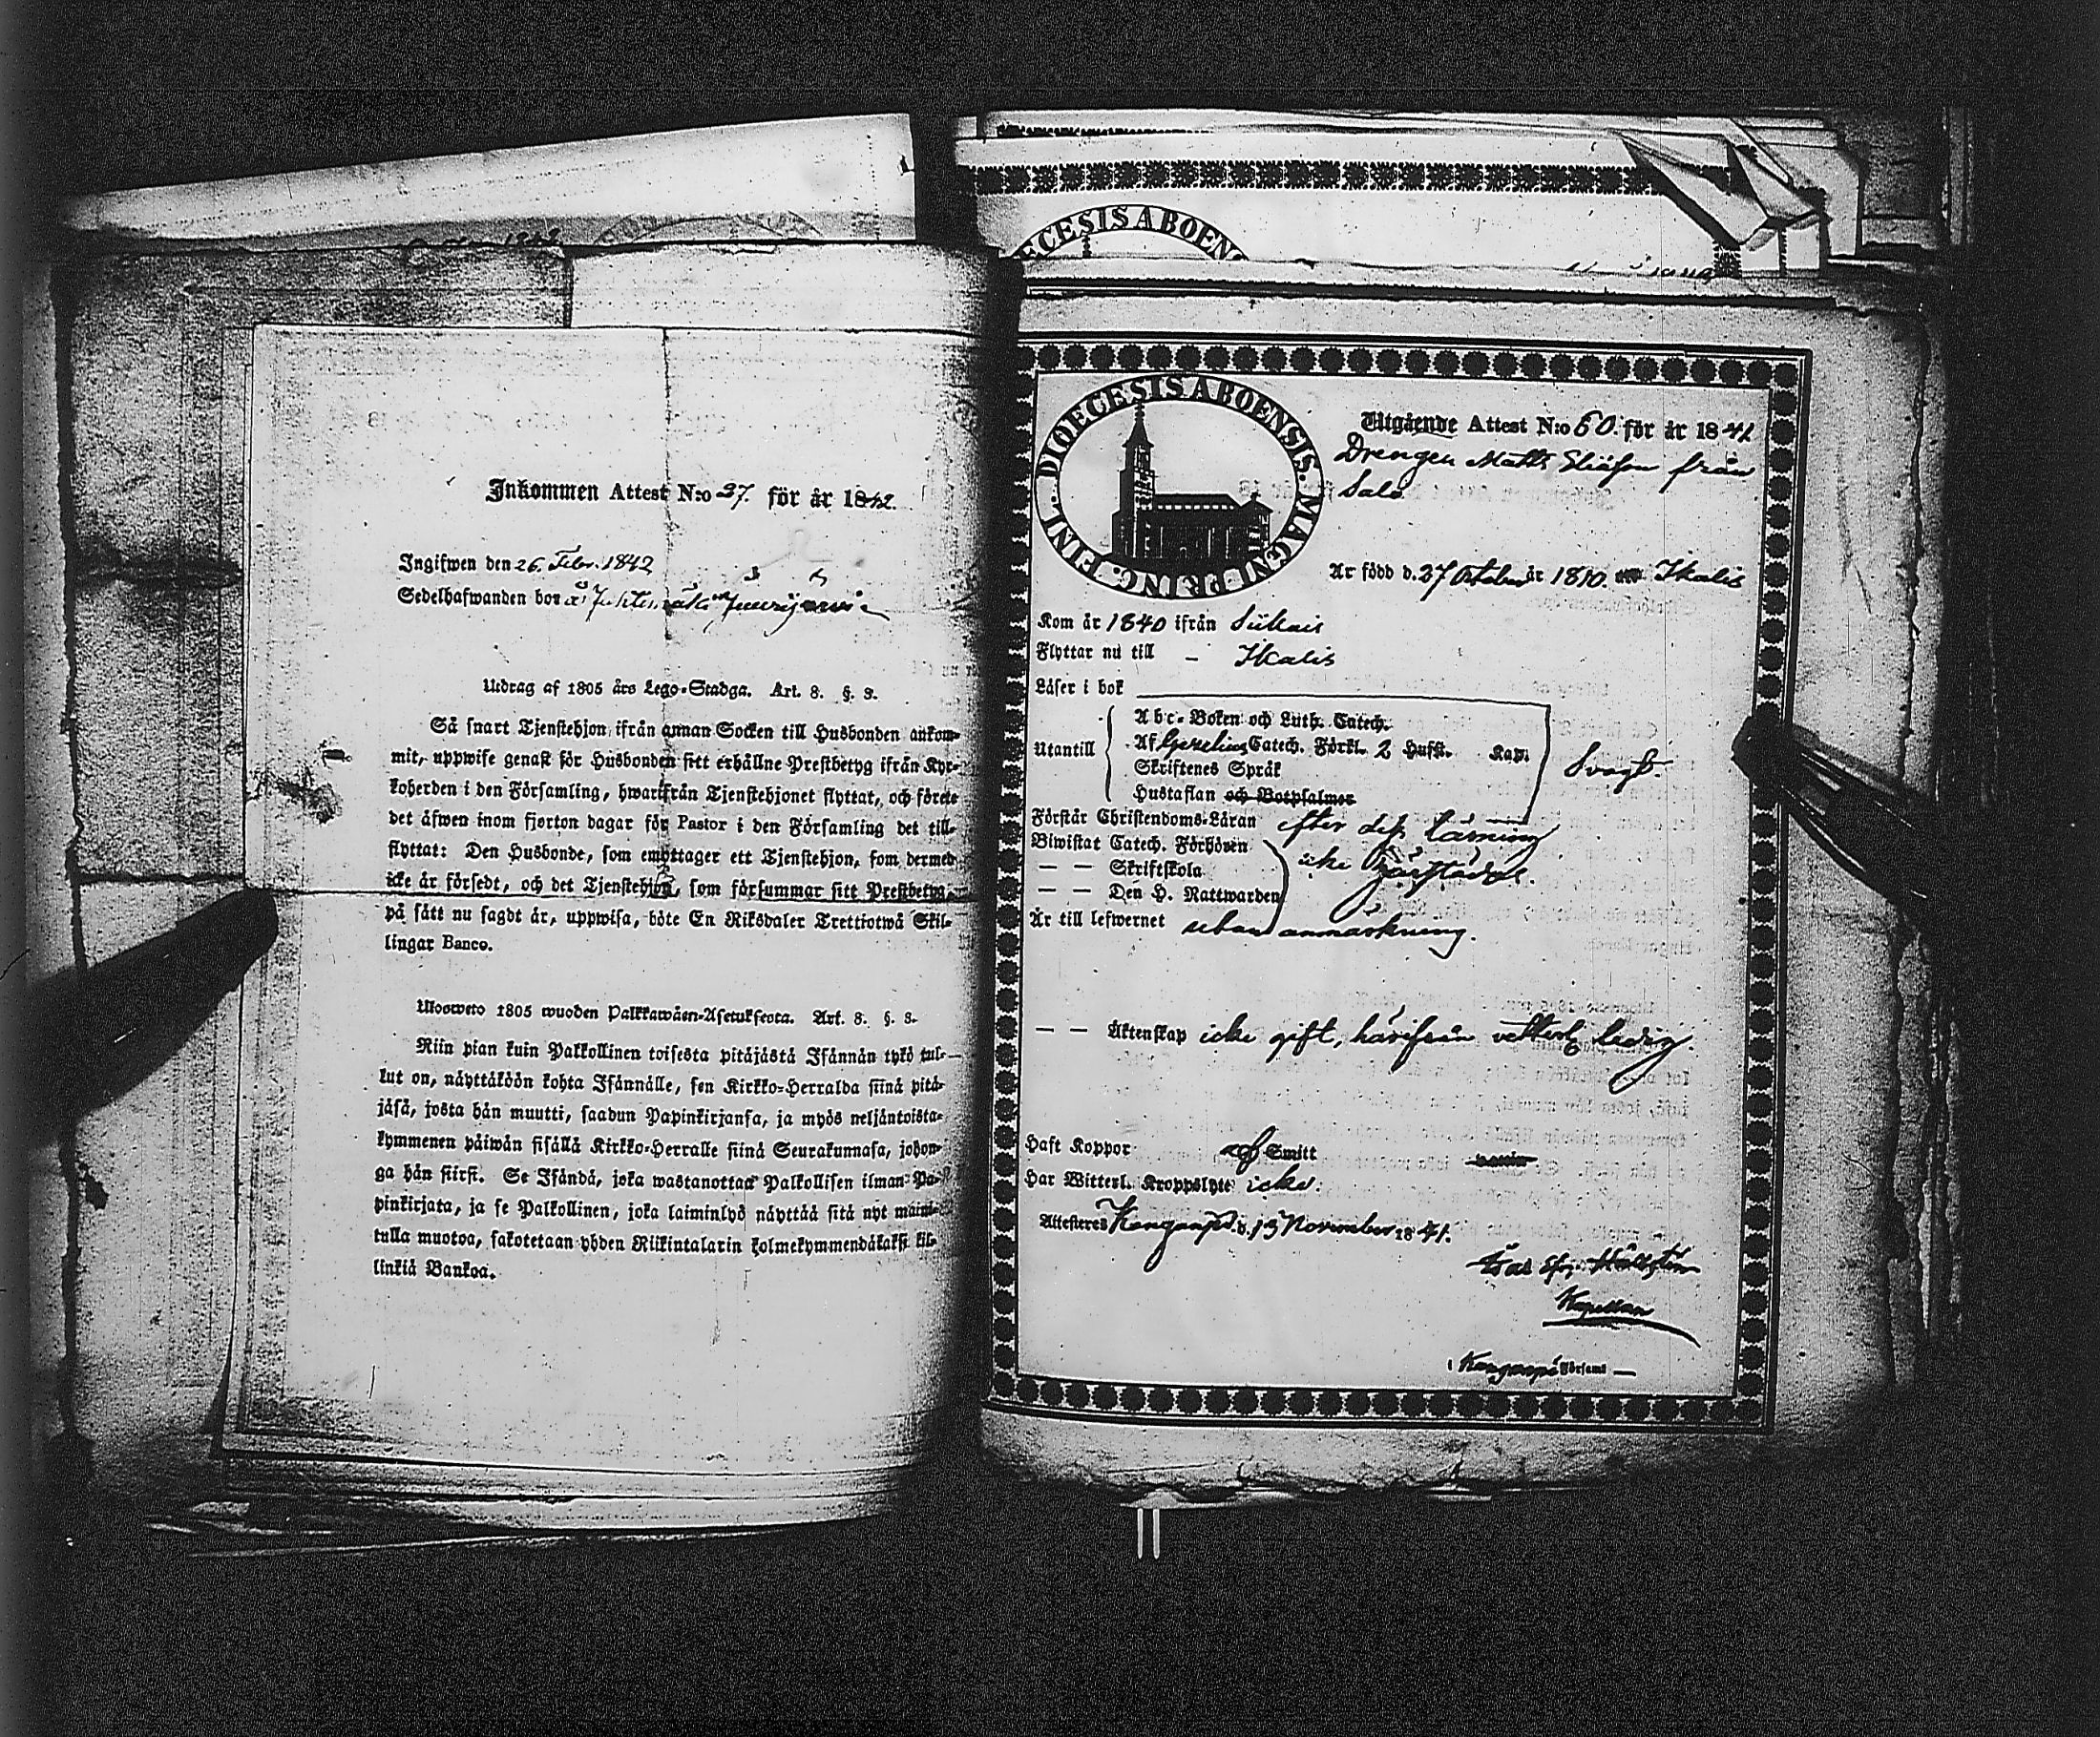 Inkommen Attest N:o 27. för år 1842.
Ingifwen den 26. Febr. 1842
Sedelhafwanden bor å
Utdrag af 1805 års Lego-Stadga. Art. 8. §. 8.
Så snart Tjenstehjon ifrån annan Socken till Husbonden ankom-
mit, uppwise genast för Husbonden sitt erhållne Prestbetyg ifrån Kyr-
koherden i den Församling, hwarifrån Tjenstehjonet flyttat, och förete
det äfwen inom fjorton dagar för Pastor i den Församling det till-
flyttat: Den Husbonde, som emottager ett Tjenstehjon, som dermed
icke är försedt, och det Tjenstehjon, som försummar sitt Prestbetyg,
på sätt nu sagdt är, uppwisa, böte En Riksdaler Trettiotwå Skil-
lingar Banco.
Ulosweto 1805 wuoden Palkkawäen-Asetuksesta. Art. 8. §. 8.
Niin pian kuin Palkollinen toisesta pitäjästä Isännän tykö tul-
lut on, näyttäköön kohta Isännälle, sen Kirkko-Herralda siinä pitä-
jäsä, josta hän muutti, saadun Papinkirjansa, ja myös neljäntoista-
kymmenen päiwän sisällä Kirkko-Herralle siinä Seurakunnasa, johon-
ga hän siirsi. Se Isändä, joka wastanottaa Palkollisen ilman Pa-
pinkirjata, ja se Palkollinen, joka laiminlyö näyttää sitä nyt maini-
tulla muotoa, sakotetaan yhden Riikintalarin kolmekymmendäkaksi kil-
linkiä Bankoa.
ECESIS ABOENS
DIOECESIS ABOENSIS. MAGNI PRINC. FINL.
Utgående Attest N:o 60. för år 1841
Drengen Matts Eliasson från
Salo.
Är född d. 27 October år 1810. Ikalis
Kom år 1840 ifrån Siikais
Flyttar nu till – Ikalis
Läser i bok
Utantill
Abc-Boken och Luth. Catech.
Af Gezelius Catech. Förkl. 2 Hufst. Kap.
Skriftenes Språk
Hustaflan och Botpsalmer
Svagt.
Förstår Christendoms-Läran efter dess läsning
Biwistat Catech. Förhören
— — Skriftskola
— — Den H. Nattwarden
icke härstädes.
Är till lefwernet utan anmärkning.
— — Äktenskap icke gift, härifrån vetterl. ledig.
Haft Koppor af Smitt
Har Witterl. Kroppslyte icke.
Attesteras Kangaspä d. 13 November 1841.
Kapellan
i Kangaspä Församl —